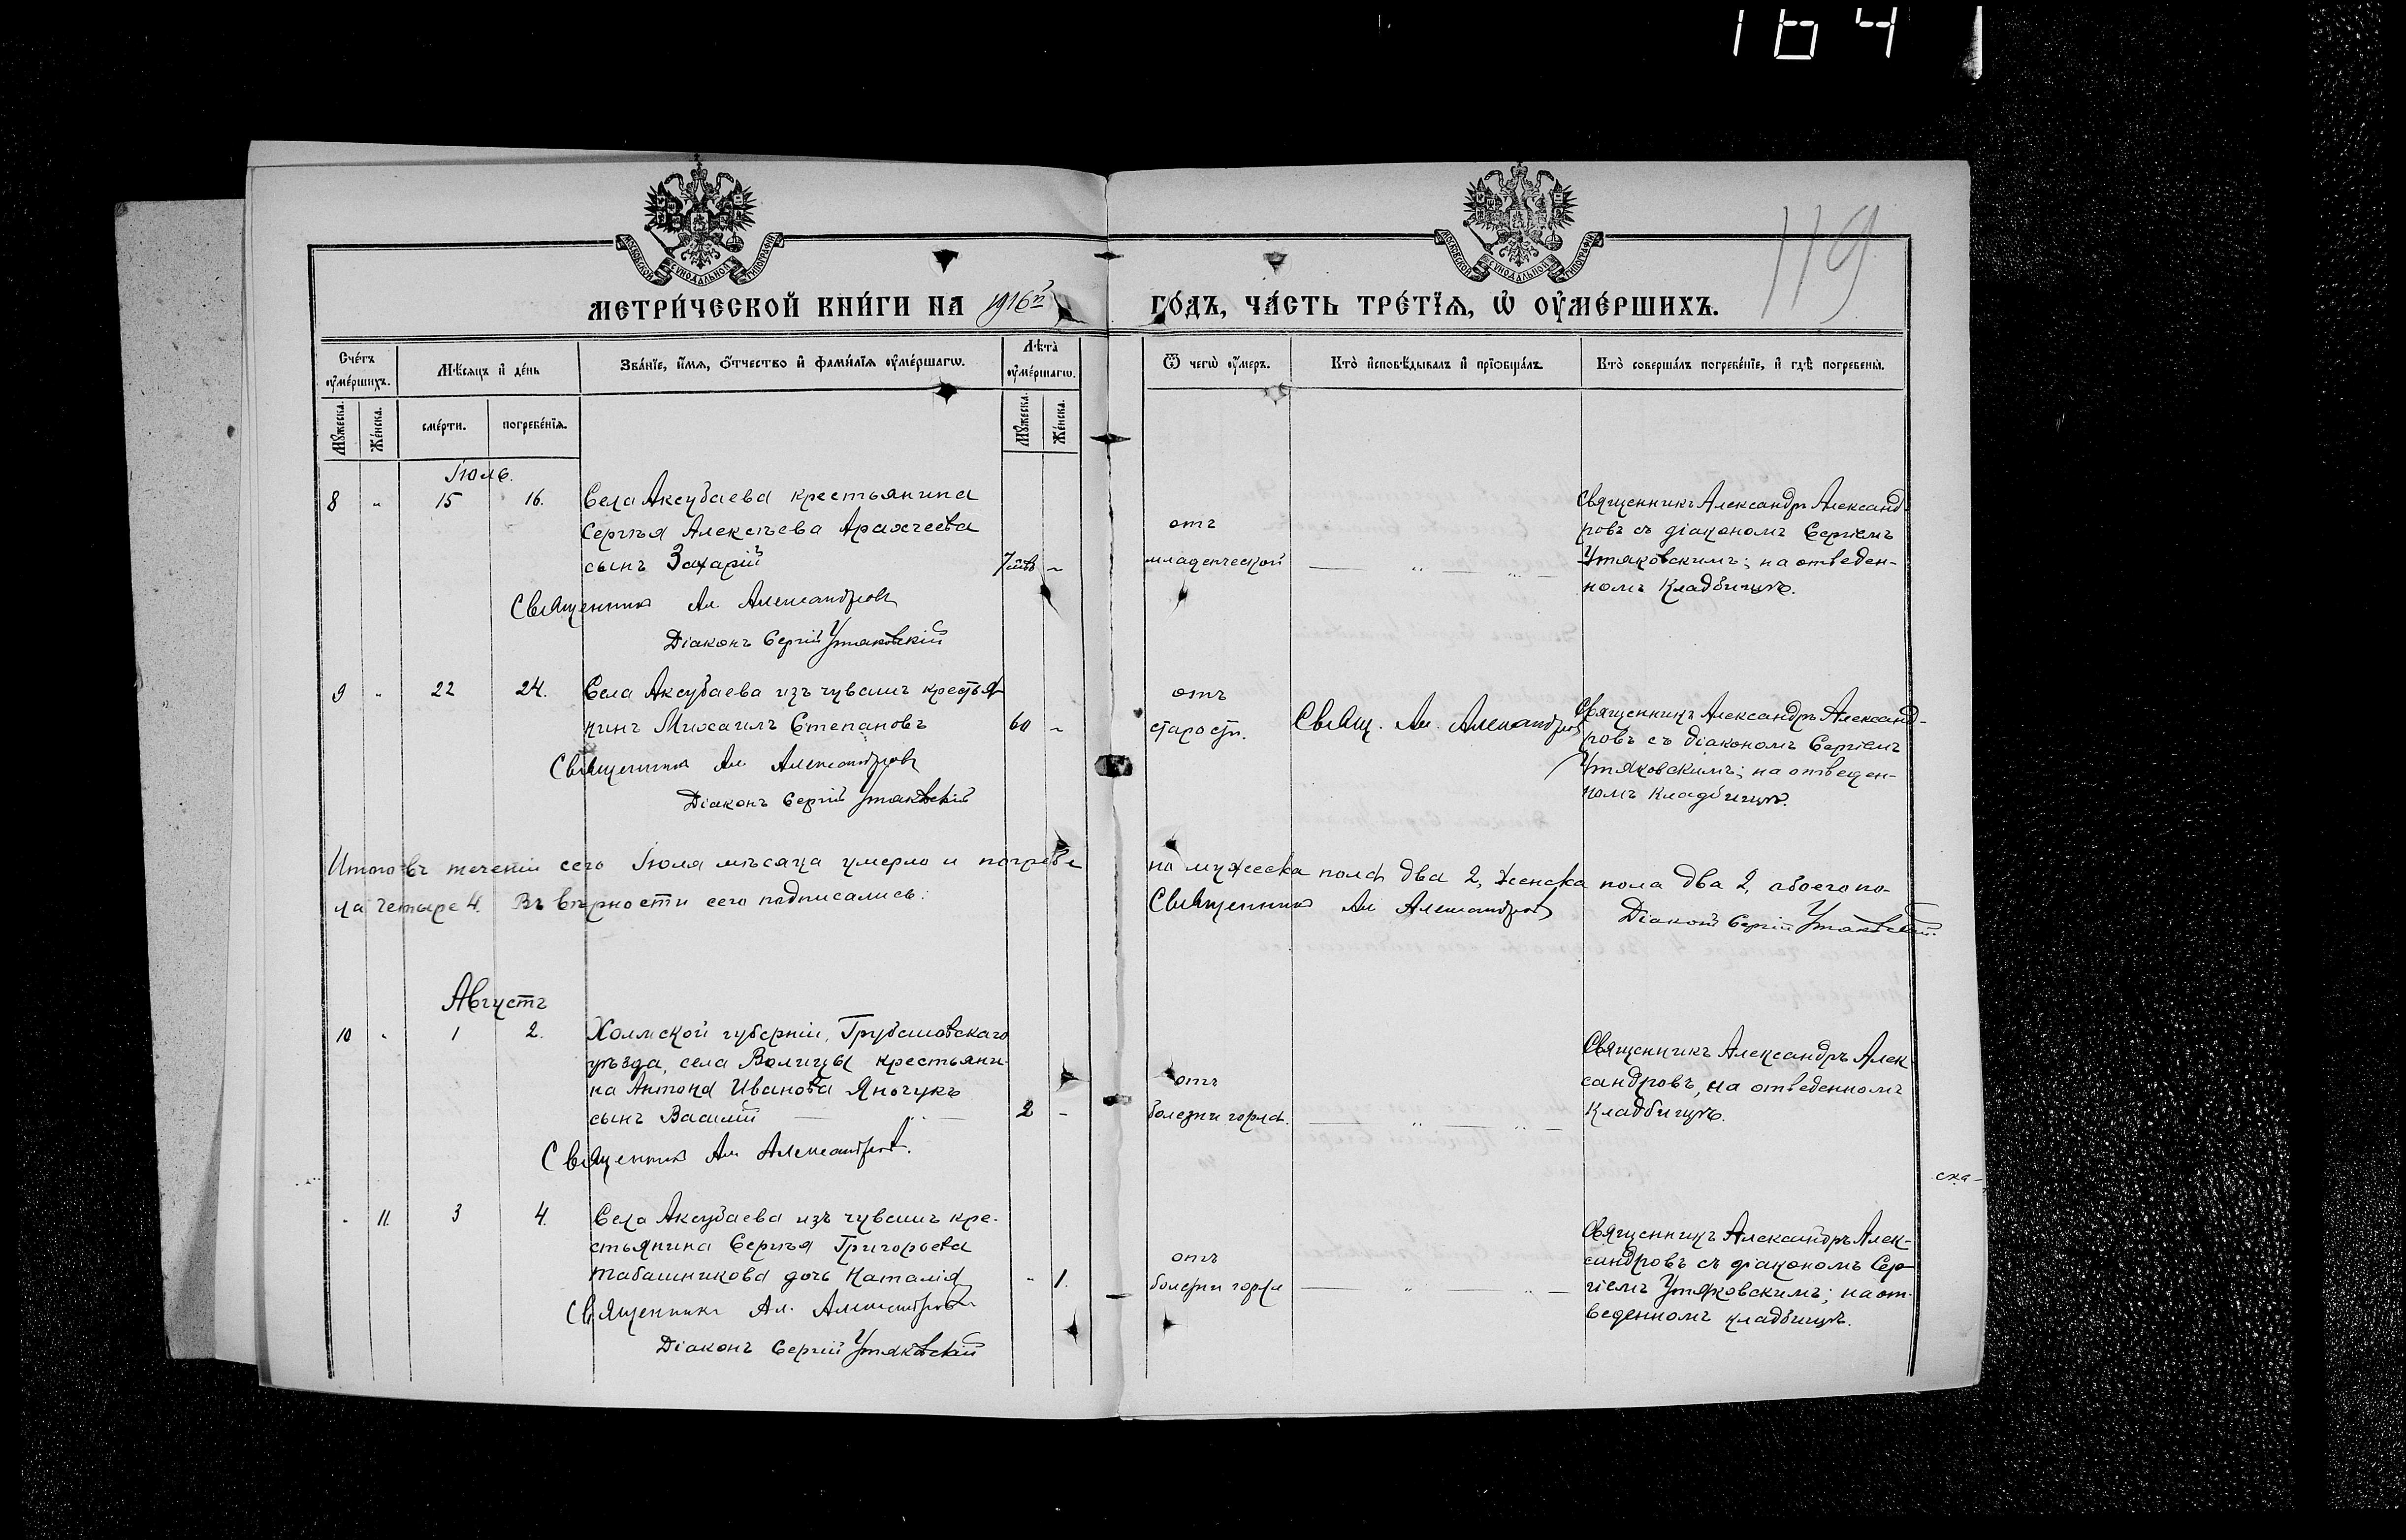 164
119
МЕТРИ́ЧЕСКОЙ КНИ́ГИ НА 1916й ГО́ДЪ, ЧА́СТЬ ТРЕ́ТЇѦ, Ѡ҆ ОУ҆МЕ́РШИХЪ.
Сче́тъ оу҆ме́ршихъ.
Мѣ́сяцъ и҆ де́нь
Зва́нїе, и҆́мя, о҆́тчество и҆ фами́лїя оу҆ме́ршагѡ.
Лѣ́та оу҆ме́ршагѡ.
Ѿ чегѡ̀ оу҆́меръ.
Кто̀ и҆сповѣ́дывалъ и҆ прїѡбща́лъ.
Кто̀ соверша́лъ погребе́нїе, и҆ гдѣ̀ погребены̀.
Мꙋ́жеска. Же́нска. сме́рти. погребе́нїя. Мꙋ́жеска. Же́нска.
Іюль.
8 " 15 16. Села Аксубаева крестьянина
Сергѣя Алексѣева Аракчеева
сынъ Захарій
Священникъ Ал. Александровъ
Діаконъ Сергій Утяковскій
отъ
младенческой
Священникъ Александръ Александ-
ровъ съ діакономъ Сергіемъ
Утяковскимъ; на отведен-
номъ кладбищѣ.
9 " 22 24. Села Аксубаева изъ чувашъ крестья-
нинъ Михаилъ Степановъ 60 -
Священникъ Ал. Александровъ
Діаконъ Сергій Утяковскій
отъ
старости.
Свящ. Ал. Александровъ
Священникъ Александръ Александ-
ровъ съ діакономъ Сергіемъ
Утяковскимъ; на отведен-
номъ кладбищѣ.
Итого въ теченіи сего Іюля мѣсяца умерло и погребе
но мужеска пола два 2, женска пола два 2, обоего по-
ла четыре 4. Въ вѣрности сего подписались:
Священникъ Ал. Александровъ Діаконъ Сергій Утяковскій.
Августъ
10 " 1 2. Холмской губерніи, Грубешовскаго
уѣзда, села Волицы крестьяни-
на Антона Иванова Яночукъ
сынъ Василій 2 -
Священникъ Ал. Александровъ.
отъ
болезни горла.
Священникъ Александръ Алек
сандровъ, на отведенномъ
кладбищѣ.
" 11. 3 4. Села Аксубаева изъ чувашъ кре-
стьянина Сергѣя Григорьева
Табашникова дочь Наталія " 1.
Священникъ Ал. Александровъ
Діаконъ Сергій Утяковскій
отъ
болезни горла
Священникъ Александръ Алек-
сандровъ съ діакономъ Сер-
гіемъ Утяковскимъ; на от-
веденномъ кладбищѣ.